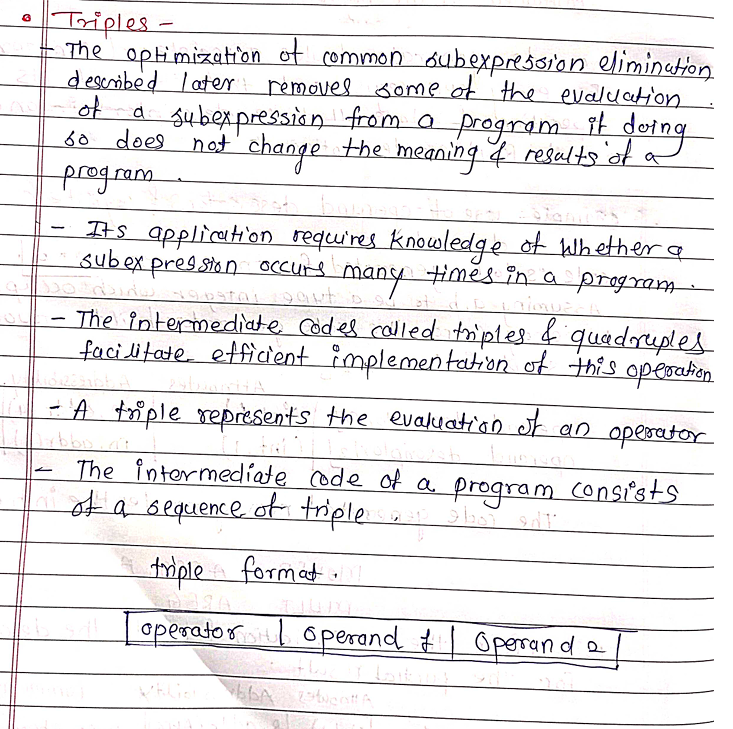 Triples -
- The optimization of common subexpression elimination
described later removes some of the evaluation
of a subexpression from a program if doing
so does not change the meaning & results of a
program.
- Its application requires knowledge of whether a
subexpression occurs many times in a program.
- The intermediate codes called triples & quadruples
facilitate efficient implementation of this operation
- A triple represents the evaluation of an operator
- The intermediate code of a program consists
of a sequence of triple.
triple format.
| operator | operand 1 | operand 2 |